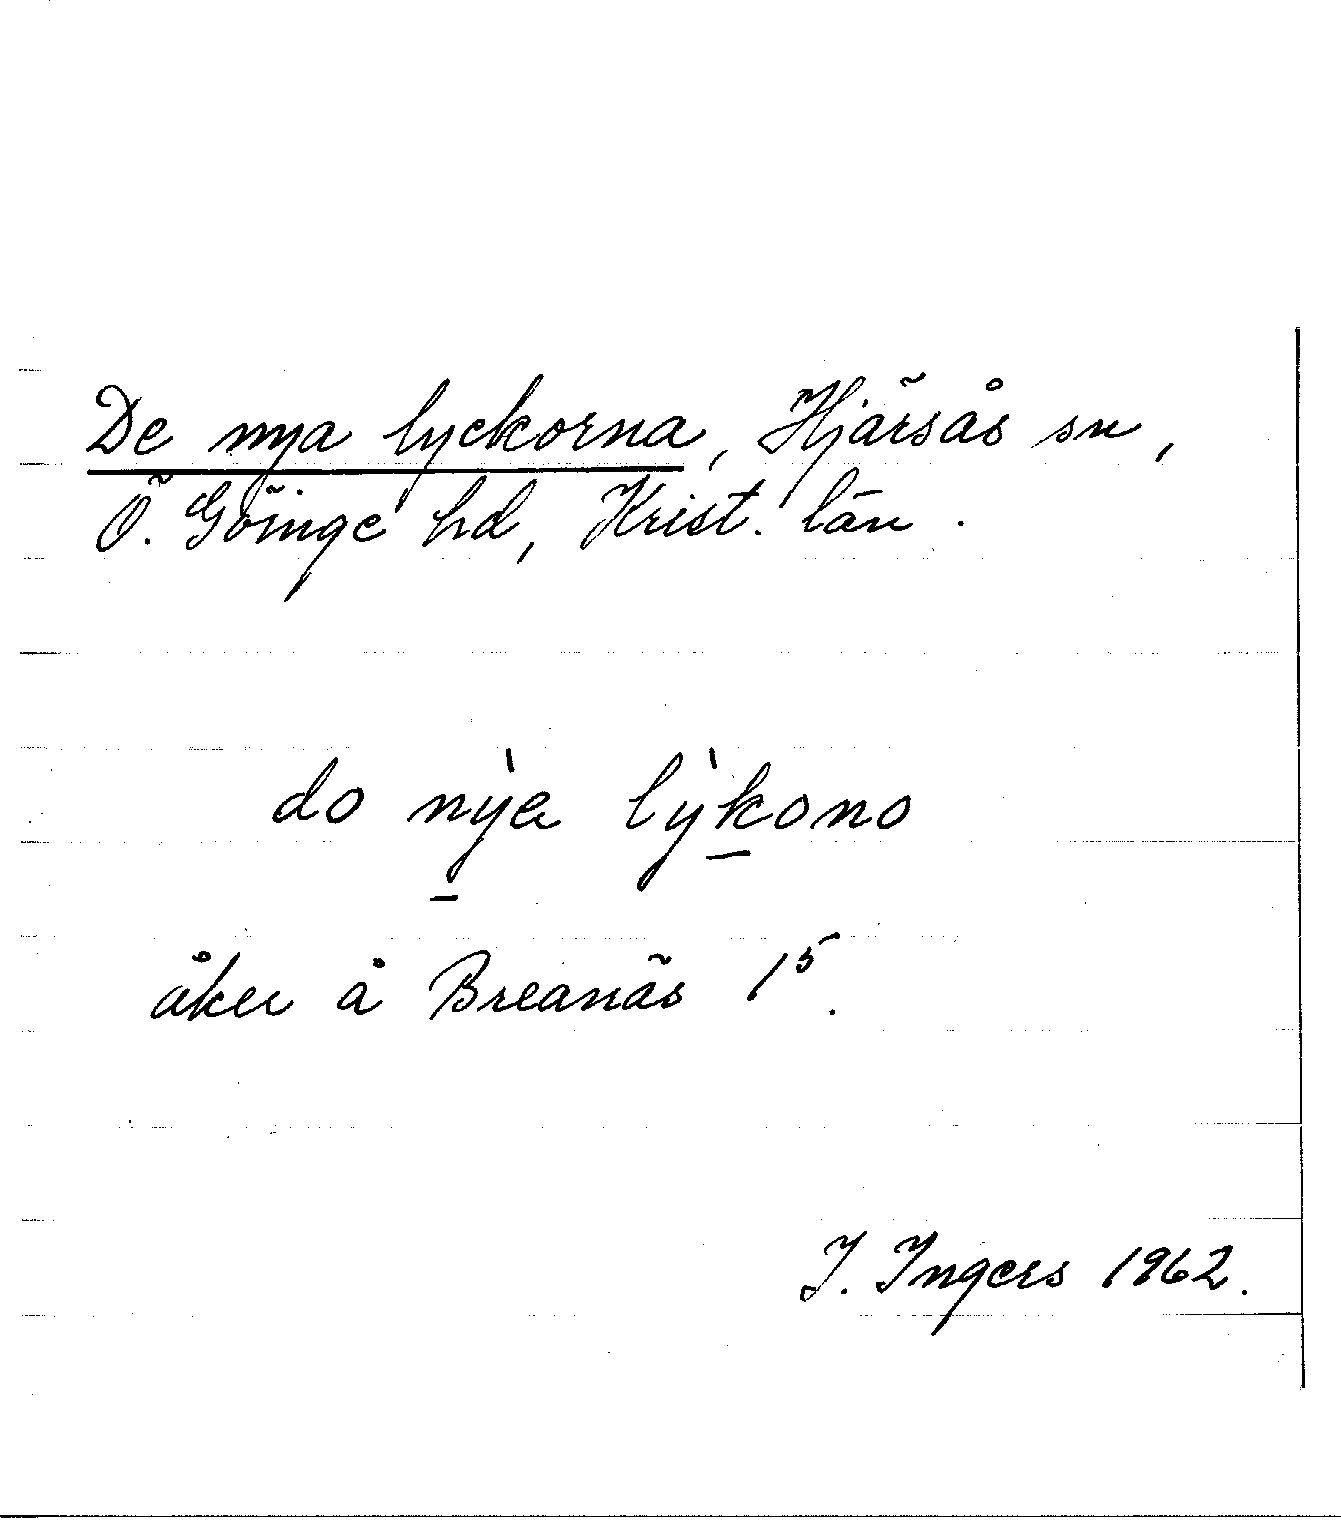 De nya lyckorna, Hjärsås sn,
Ö. Göinge hd, Krist. län.
do nỳa lỳkono
åker å Breanäs 1⁵.
I. Ingers 1962.